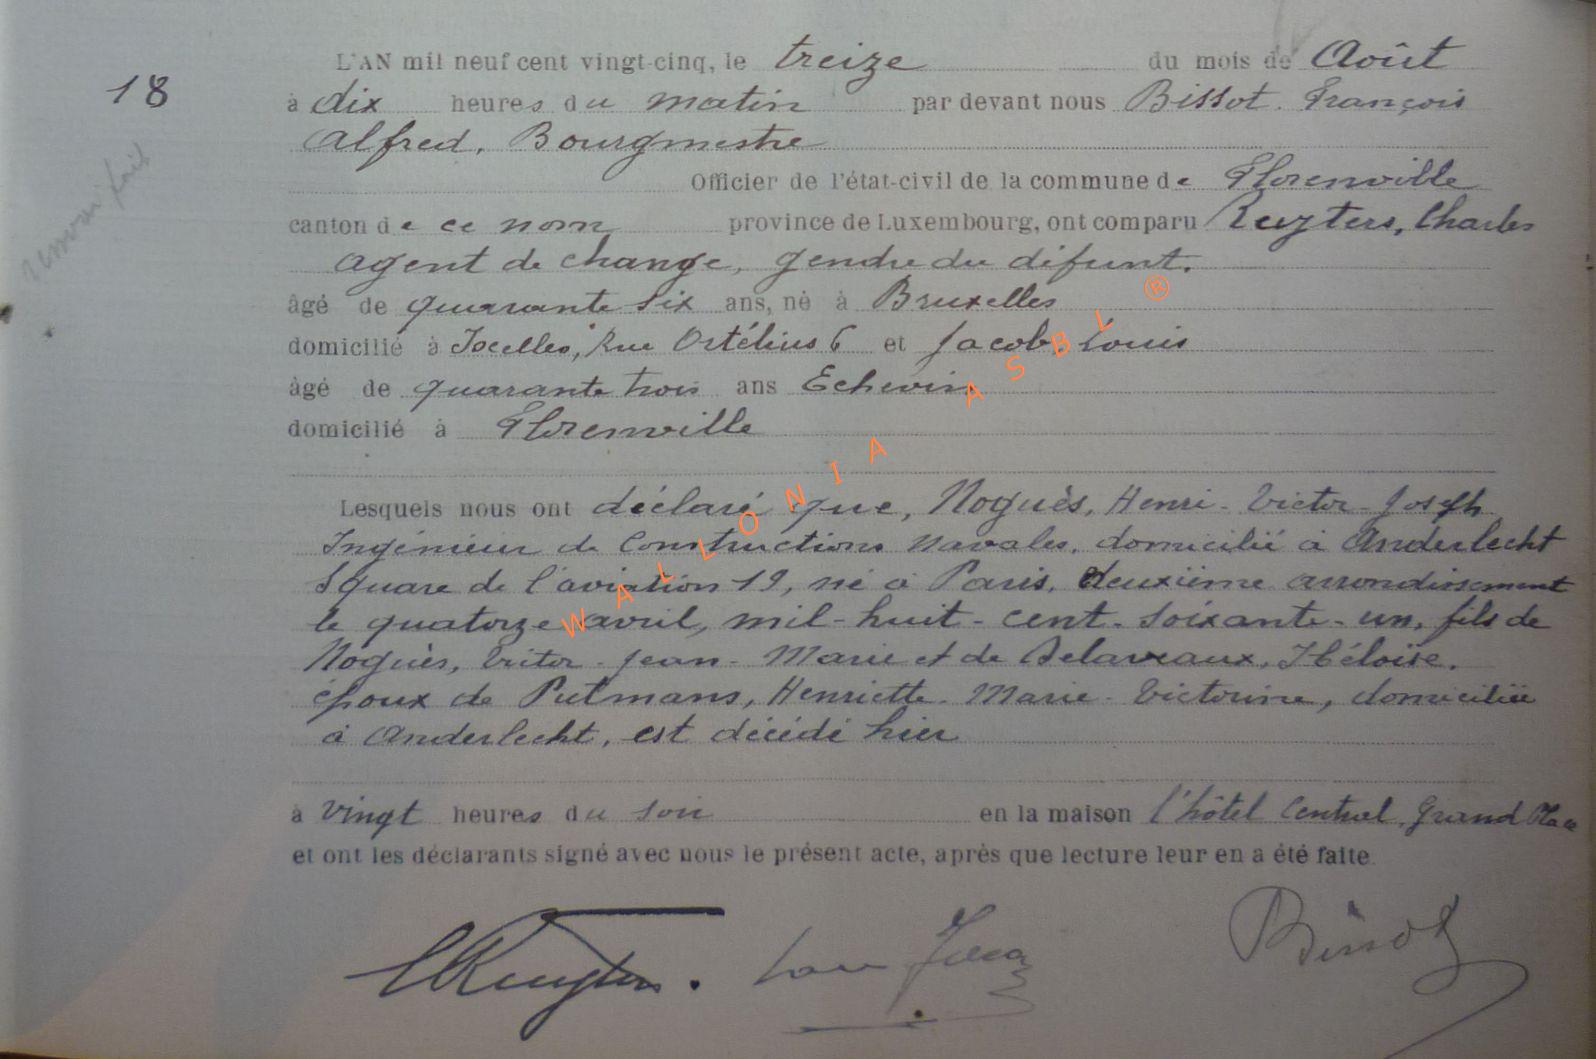 18
L'AN mil neuf cent vingt-cinq, le treize du mois de Août
à dix heures du matin par devant nous Bissot. François
Alfred, Bourgmestre
Officier de l'état-civil de la commune de Florenville
canton de ce nom province de Luxembourg, ont comparu Ruyters, Charles
agent de change, gendre du défunt.
âgé de quarante six ans, né à Bruxelles
domicilié à Ixelles, Rue Ortélius 6 et Jacob, Louis
âgé de quarante trois ans Echevin
domicilié à Florenville
Lesquels nous ont déclaré que, Noguès, Henri - Victor - Joseph
Ingénieur de Constructions navales, domicilié à Anderlecht
Square de l'aviation 19, né à Paris, deuxième arrondissement
le quatorze avril, mil-huit-cent-soixante-un, fils de
Noguès, Victor - Jean - Marie et de Delaveaux, Héloïse.
époux de Putmans, Henriette - Marie - Victorine, domiciliée
à Anderlecht, est décédé hier
à vingt heures du soir en la maison l'hôtel Central, Grand Place
et ont les déclarants signé avec nous le présent acte, après que lecture leur en a été faite.
Bissot
WALLONIA ASBL ®